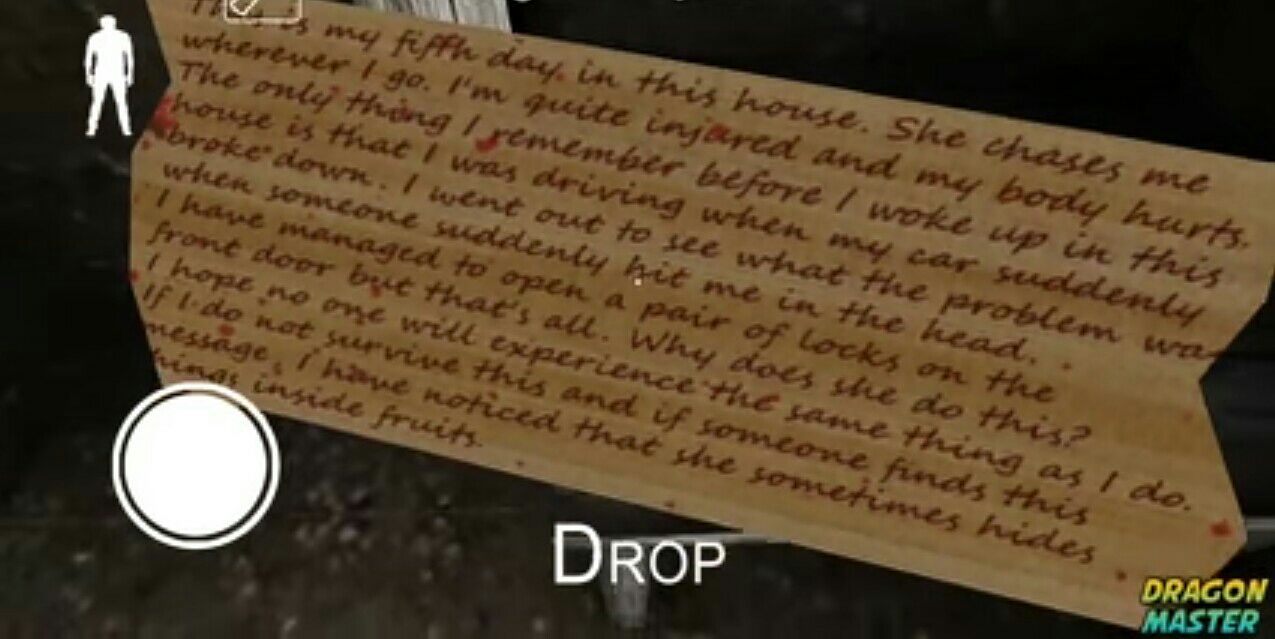 This is my fifth day in this house. She chases me
wherever I go. I'm quite injured and my body hurts.
The only thing I remember before I woke up in this
house is that I was driving when my car suddenly
broke down. I went out to see what the problem was
when someone suddenly hit me in the head.
I have managed to open a pair of locks on the
front door but that's all. Why does she do this?
I hope no one will experience the same thing as I do.
If I do not survive this and if someone finds this
message, I have noticed that she sometimes hides
things inside fruits.
DROP
DRAGON
MASTER